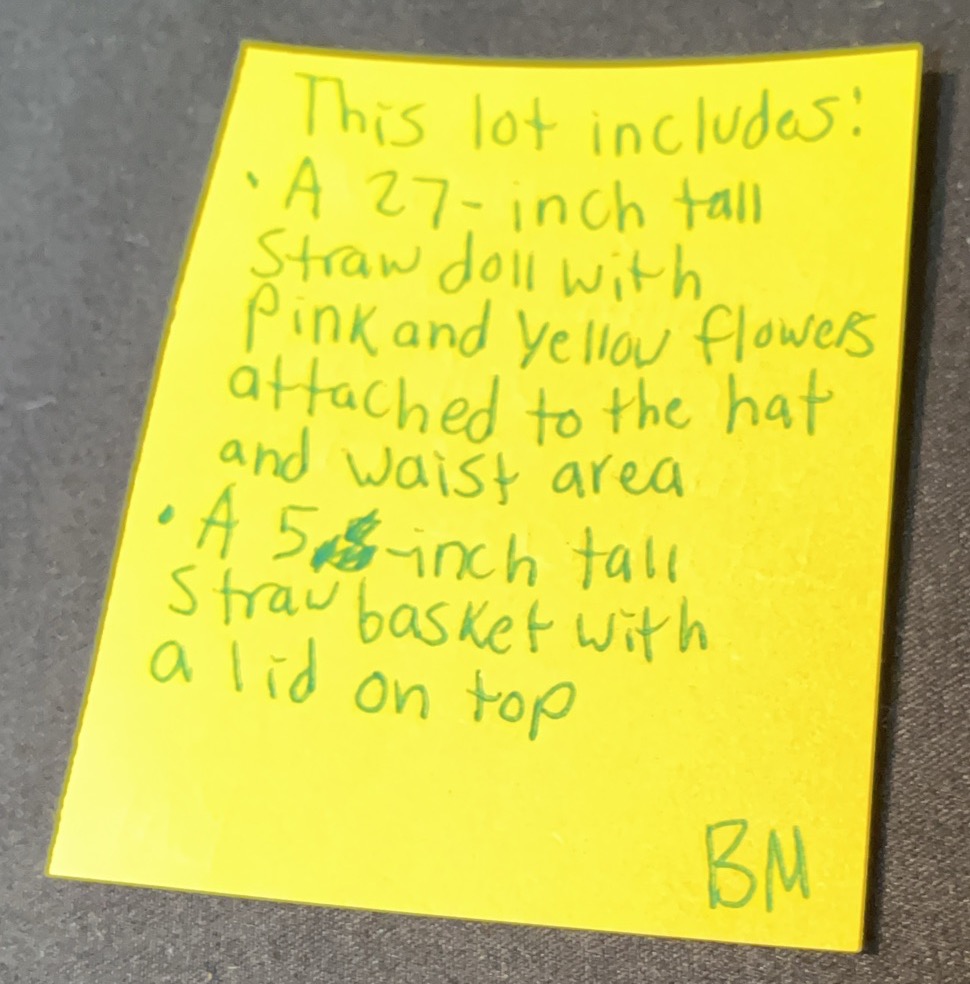 This lot includes:
• A 27-inch tall
Straw doll with
Pink and Yellow flowers
attached to the hat
and waist area
• A 5 -inch tall
Straw basket with
a lid on top
BM